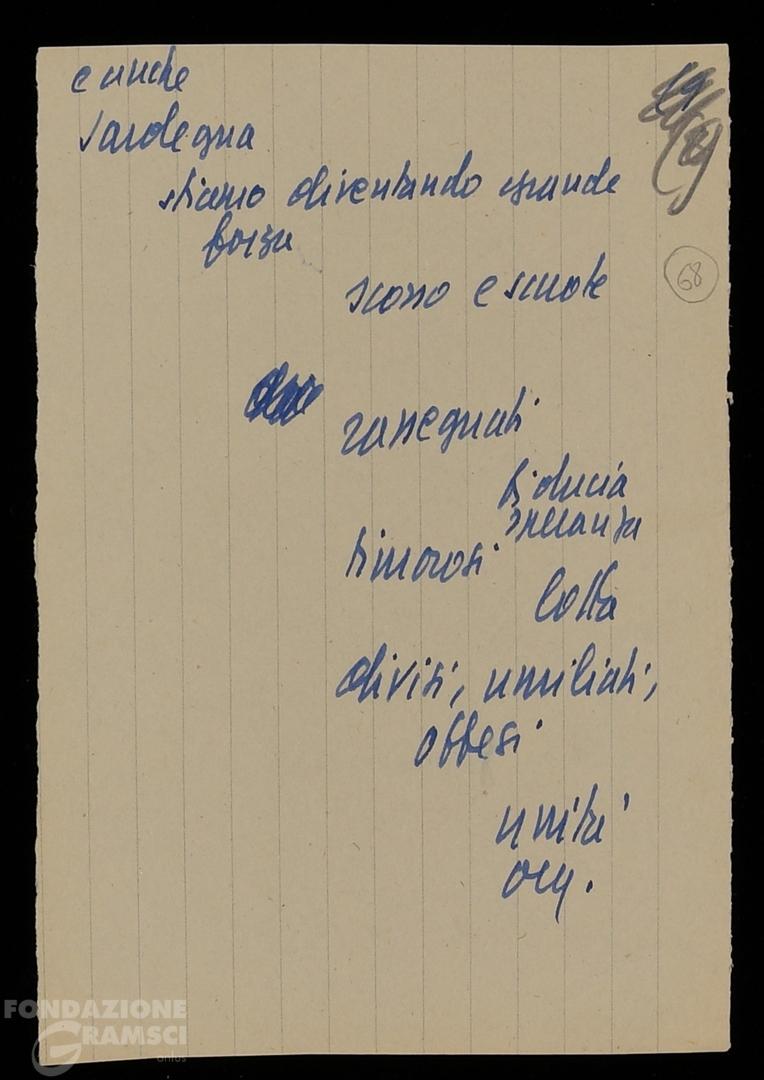 e anche
Sardegna
stiamo diventando grande
forza
68
scosso e scuote
rassegnati
fiducia
speranza
timorosi
lotta
divisi, umiliati,
offesi
unità
org.
FONDAZIONE
GRAMSCI
onlus